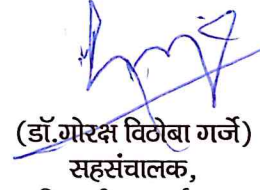 (डॉ.गोरक्ष विठोबा गर्जे)
सहसंचालक,